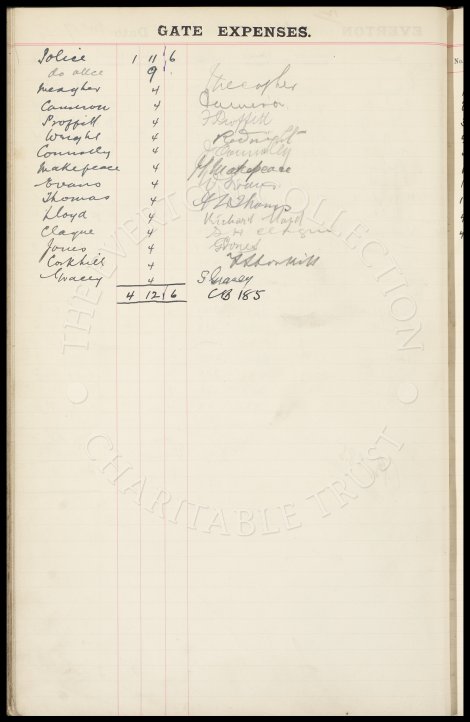 GATE EXPENSES.
Police 1 11 6
do allce 9
Meagher 4 Meagher
Cameron 4 Cameron
Proffitt 4 Proffitt
Wright 4
Connolly 4 Connolly
Makepeace 4 H Makepeace
Evans 4 W Evans
Thomas 4
Lloyd 4 Richard Lloyd
Clague 4 G H Clague
Jones 4 Jones
Corkhill 4
Gracey 4 S Gracey
4 12 6 CB 185
THE EVERTON COLLECTION
CHARITABLE TRUST
EVERTON
No.